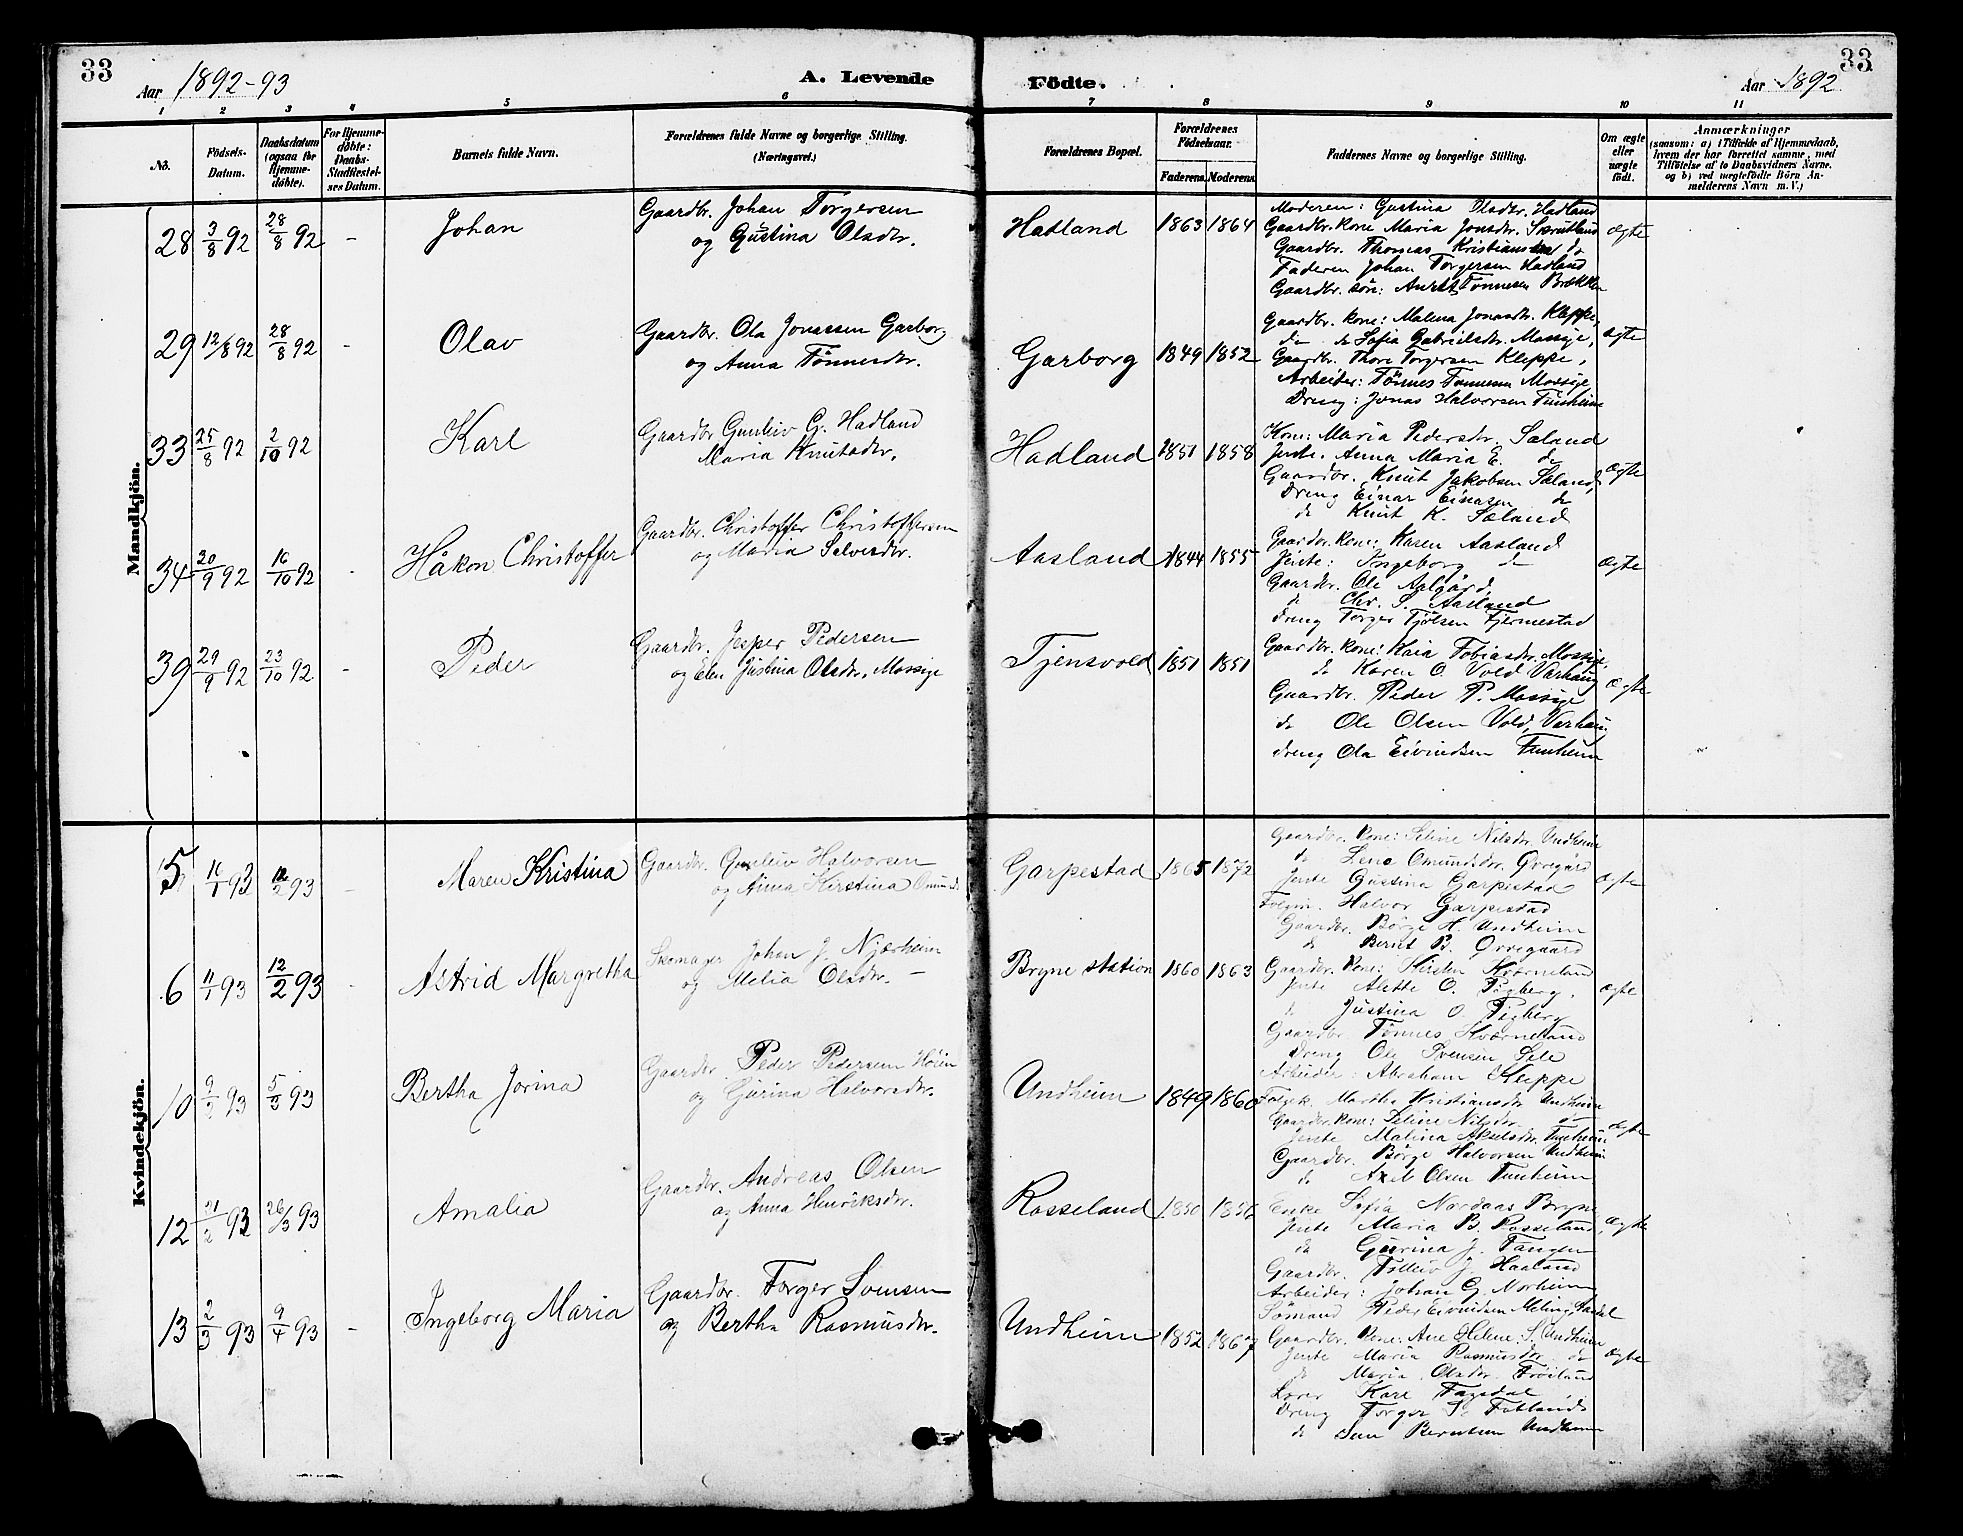 33
Aar 1892-93
A. Levende
Födte.
Aar 1892
33
1 2 3 4 5 6 7 8 9 10 11
No.
Födsels-Datum.
Daabsdatum (ogsaa for Hjemme-döbte).
For Hjemme-döbte: Daabs-Stadfæstel-ses Datum.
Barnets fulde Navn.
Forældrenes fulde Navne og borgerlige Stilling. (Næringsvei.)
Forældrenes Bopæl.
Forældrenes Födselsaar.
Faderens. Moderens.
Faddernes Navne og borgerlige Stilling.
Om ægte eller uægte födt.
Anmærkninger
(saasom: a) i Tilfælde af Hjemmedaab,
hvem der har forrettet samme, med
Tilföielse af to Daabsvidners Navne.
og b) ved uægtefödte Börn An-
melderens Navn m. V.)
Mandkjön.
28 3/8 92 28/8 92 - Johan
Gaardbr. Johan Torgersen
og Gustina Olsdtr.
Hadland 1863 1864
Moderen: Gustina Olsdtr. Hadland
Gaardbr. kone Maria Jonsdtr. Skrutland
Gaardbr. Thomas Kristiansen do
Faderen Johan Torgersen Hadland
Gaardbr. sön: Tönnesen Brekken
ægte
29 12/8 92 28/8 92 - Olav
Gaardbr. Ola Jonassen Garborg
og Anna Tönnesdtr.
Garborg 1849 1852
Gaardbr. kone: Malena Jonasdtr. Kleppe,
do do Sofia Gabrielsdtr. Mossige,
Gaardbr. Thore Torgersen Kleppe,
Arbeider: Tönnes Tönnesen Mossige
Dreng: Jonas Halvorsen Tunheim
ægte
33 25/8 92 2/10 92 Karl
Gaardbr Gunleiv G. Hadland
Maria Knutsdtr.
Hadland 1851 1858
Kone: Maria Pedersdtr. Sæland
Jente. Anna Maria E. do
Gaardbr. Knut Jakobsen Sæland,
Dreng Einar Einasen do
do Knut K. Sæland
ægte
34 20/9 92 16/10 92 - Håkon Christoffer
Gaardbr. Christoffer Christoffersen
og Maria Salvesdtr.
Aasland 1844 1855
Gaardbr. kone: Karen Aasland
Jente: Ingeborg do
Gaardbr. Ole Aalgård,
do Chr. S. Aasland
Dreng Torger Fjermestad
ægte
39 29/9 92 23/10 92 - Peder
Gaardbr. Jesper Pedersen
og Elen Justina Olsdtr. Mossige
Tjensvold 1851 1851
Gaardbr. kone: Kaia Tobiasdtr. Mossige,
do Karen O. Vold Varhaug
Gaardbr. Peder P. Mossige
do Ole Olsen Vold, Varhaug
Dreng Ola Eivindsen Tunheim
ægte
Kvindekjön.
5 16/1 93 12/2 93 - Maren Kristina
Gaardbr. Gunleiv Halvorsen
og Anna Kirstina Omundsd
Garpestad 1865 1872
Gaardbr. kone: Seline Nilsdtr. Undheim
do Lena Omundsdtr. Qvegård
Jente Gustina Garpestad
Folgm. Halvor Garpestad
Gaardbr. Börge H. Undheim
do Bernt B. Qvegaard
ægte
6 11/1 93 12/2 93 - Astrid Margretha
Skomager Johan J. Njærheim
og Melia Olsdtr. -
Bryne station 1860 1863
Gaardbr. kone: Kirsten Kværneland
Jente Alette O. Tigberg,
do Justina O. Tigberg
Gaardbr Tönnes Kværneland
Dreng Ole Svensen Sele
Arbeider: Abraham Kleppe
ægte
10 9/2 93 5/3 93 Bertha Jorina
Gaardbr Peder Pedersen Höien
og Gurina Halvorsdtr.
Undheim 1849 1860
Folgek. Martha Kristiansdtr Undheim
Gaardbr. kone: Seline Nilsdtr. do
Jente Malina Akselsdtr. Tunheim
Gaardbr. Börge Halvorsen Undheim
do Axel Olsen Tunheim
ægte
12 21/2 93 26/3 93 Amalia
Gaardbr. Andreas Olsen
og Anna Henriksdtr.
Rosseland 1850 1856
Enke Sofia Nordaas Bryne
Jente Maria B. Rosseland,
do Gurina J. Tangen
Gaardbr. Tolleiv J. Haaland
Arbeider: Johan G. Norheim
Sömand Peder Eivindsen Meling
ægte
13 2/3 93 9/4 93 - Ingeborg Maria
Gaardbr. Torger Svensen
og Bertha Rasmusdtr.
Undheim 1852 1867
Gaardbr. kone: Ane Helene S. Undheim
Jente Maria Rasmusdtr do
do Maria Olsdtr Fröiland
Lærer Karl Fagsdal
Dreng Torger S. Fotland
do Sven Berntsen Undheim
ægte